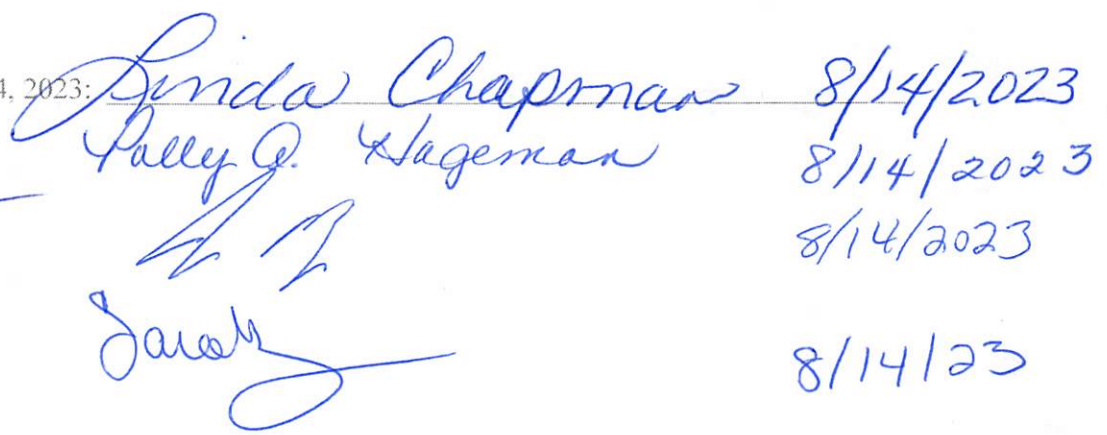 4, 2023: Linda Chapman 8/14/2023
Polly A. Hageman 8/14/2023
8/14/2023
Sarah 8/14/23